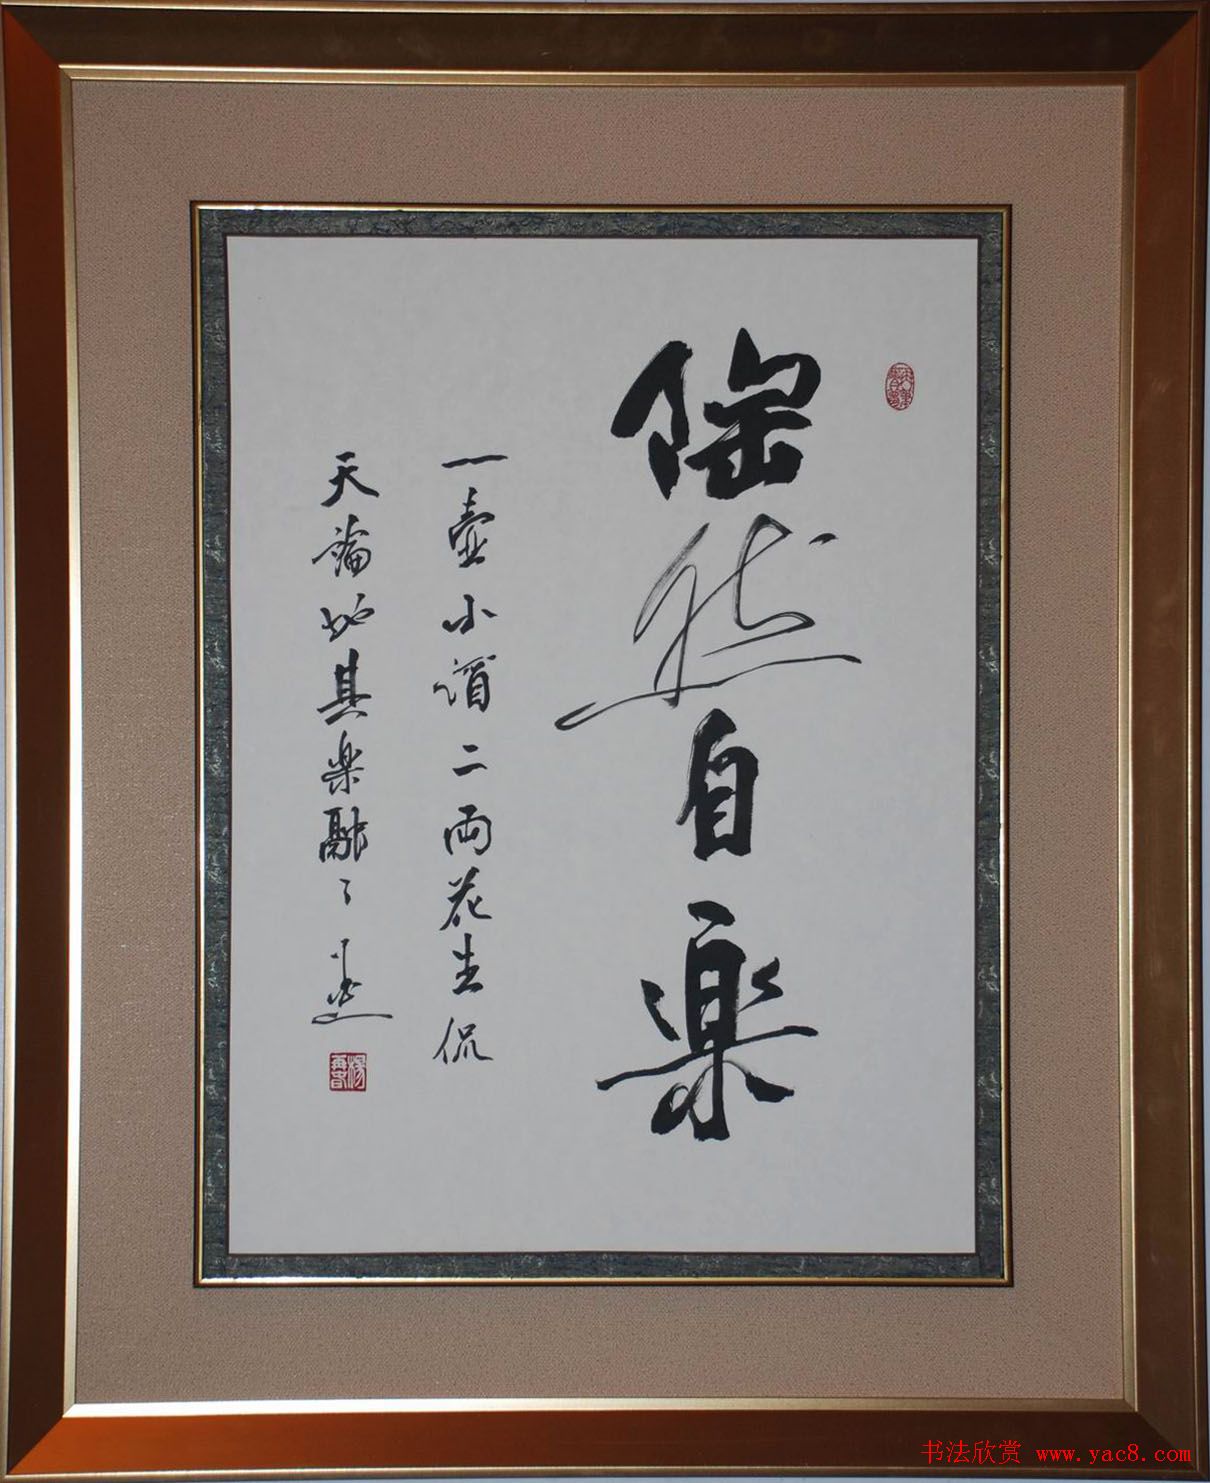 陶然自楽
一壺小酒二両花生侃
天論地其楽融々
楊再春
书法欣赏 www.yac8.com